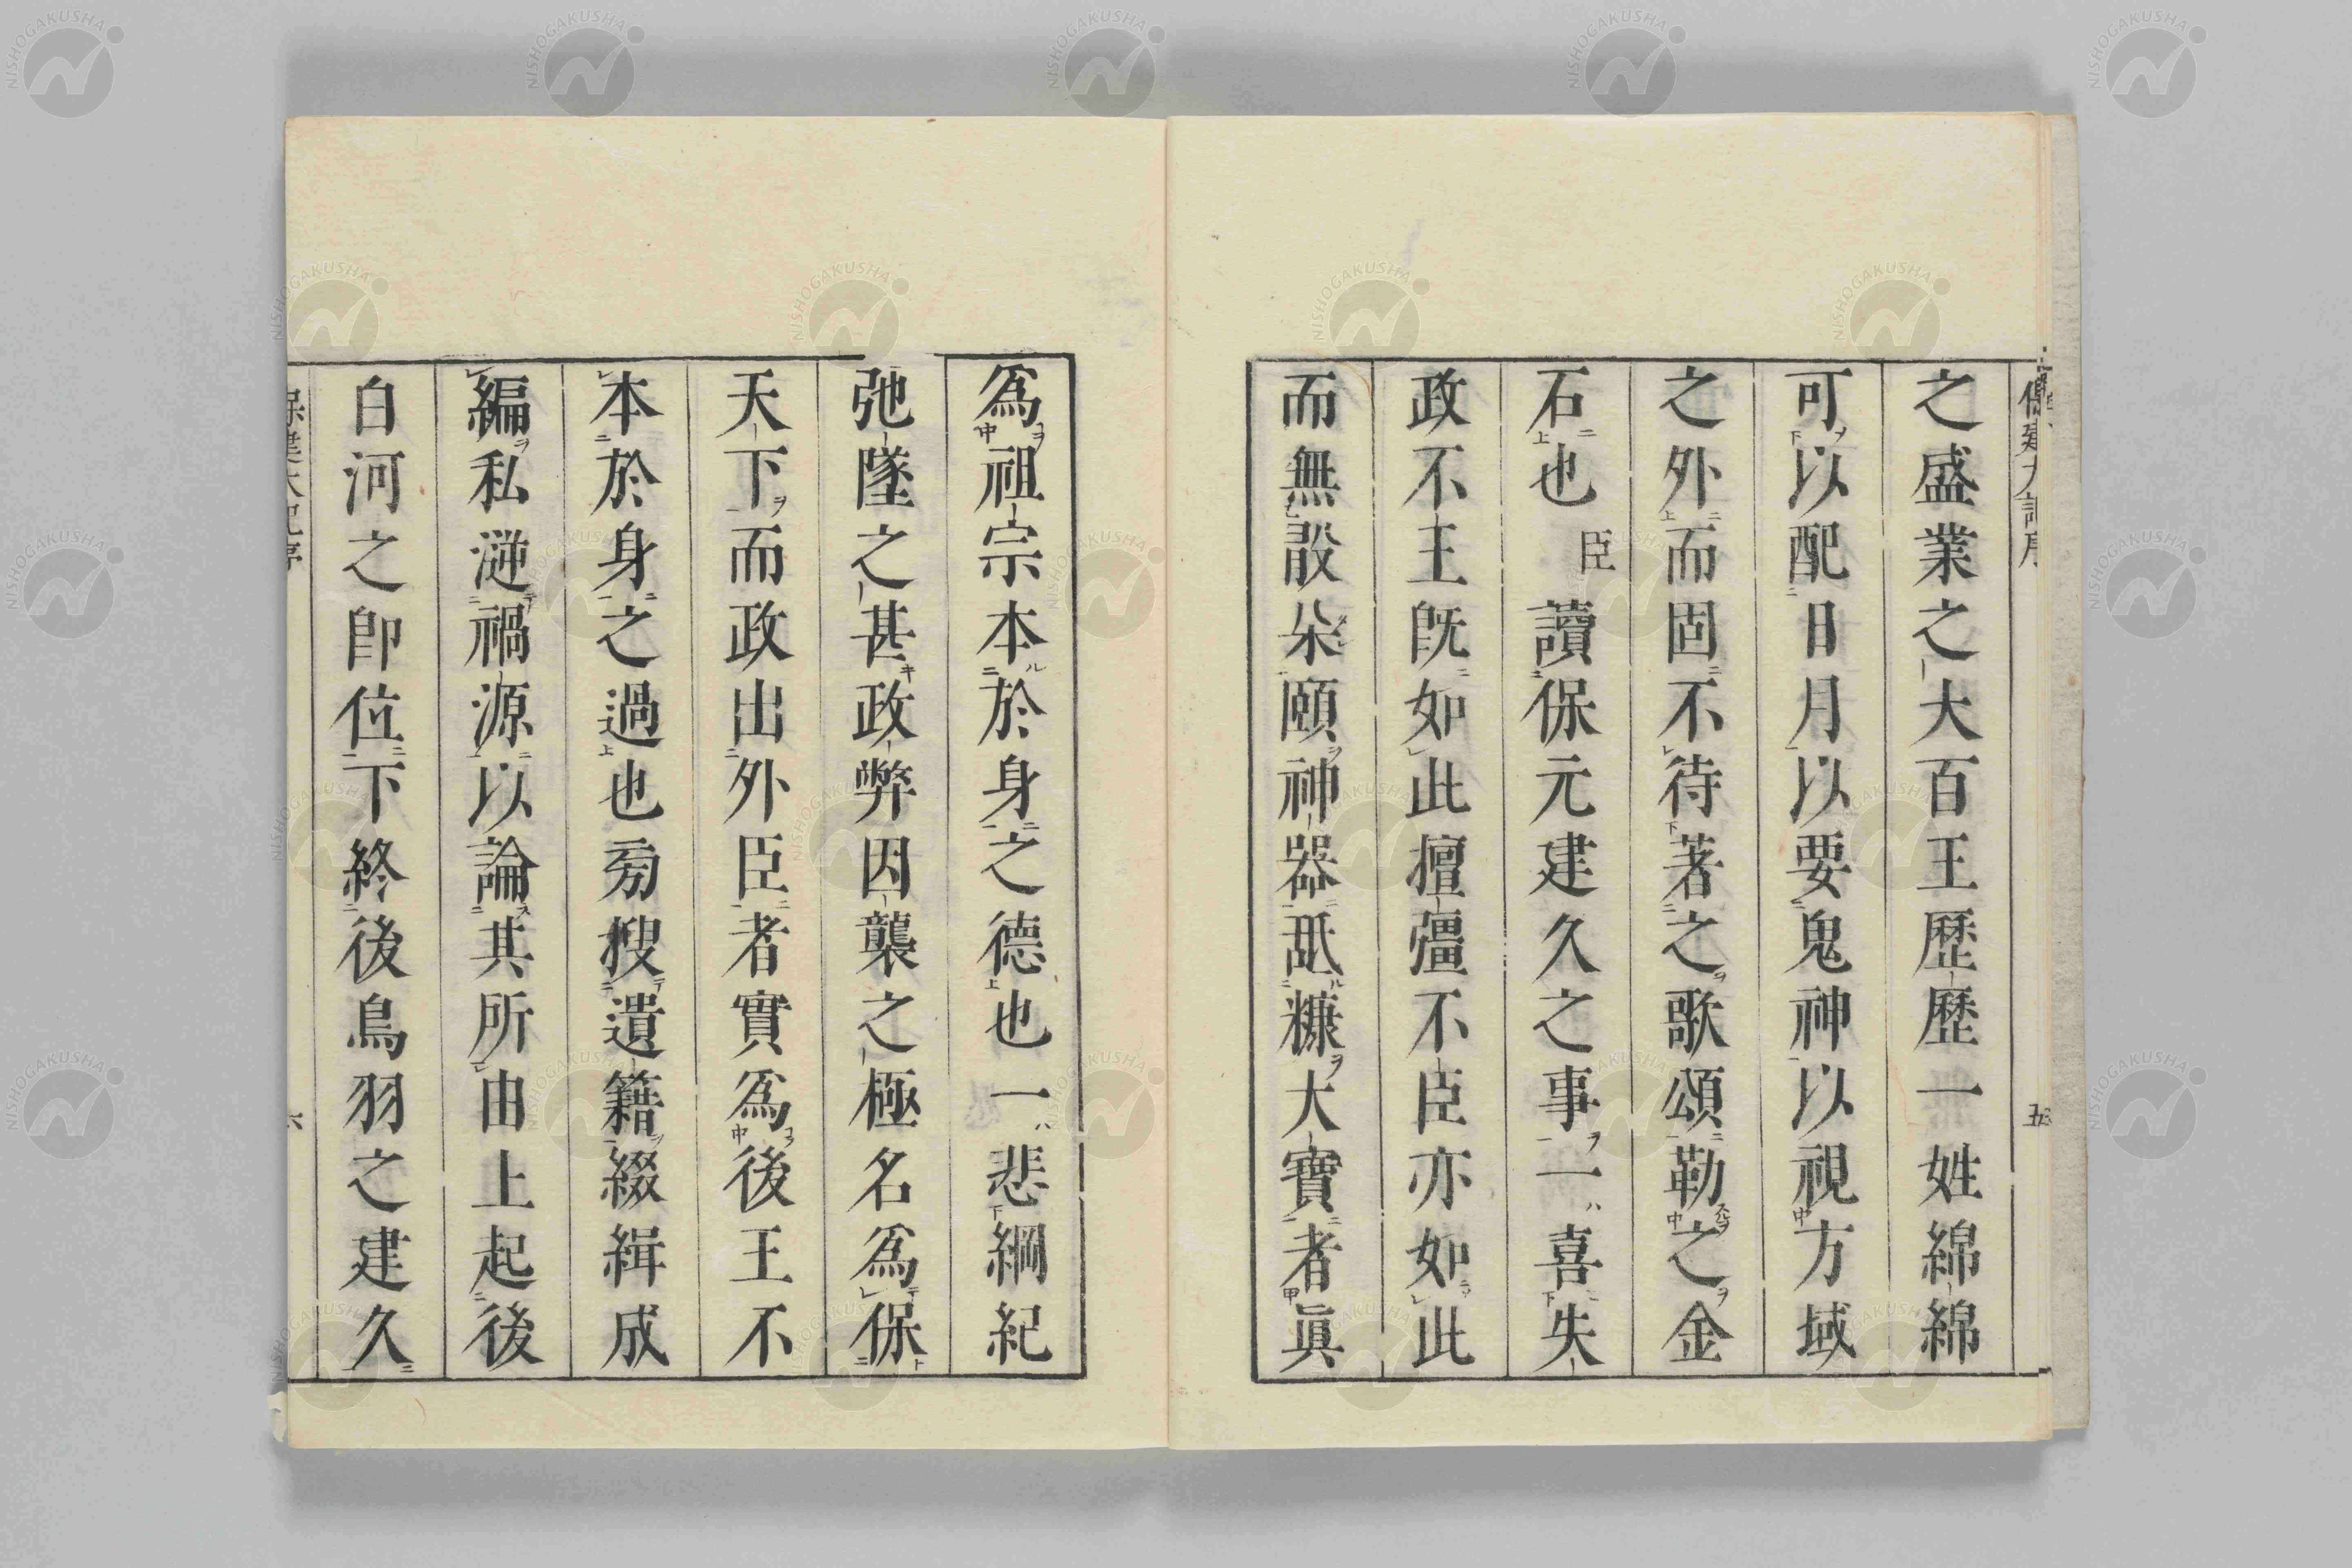 之盛業之大百王歷歷一姓綿綿
可以配日月以要鬼神以視方域
之外而固不待著之歌頌勒之金
石也臣讀保元建久之事一喜失
政不王既如此擅彊不臣亦如此
而無敢朶頤神器舐糠大寶者眞
爲祖宗本於身之德也一悲綱紀
弛墜之甚政弊因襲之極名爲保
天下而政出外臣者實爲後王不
本於身之過也旁搜遺籍綴緝成
編私遡禍源以論其所由上起後
白河之卽位下終後鳥羽之建久
六
NISHOGAKUSHA